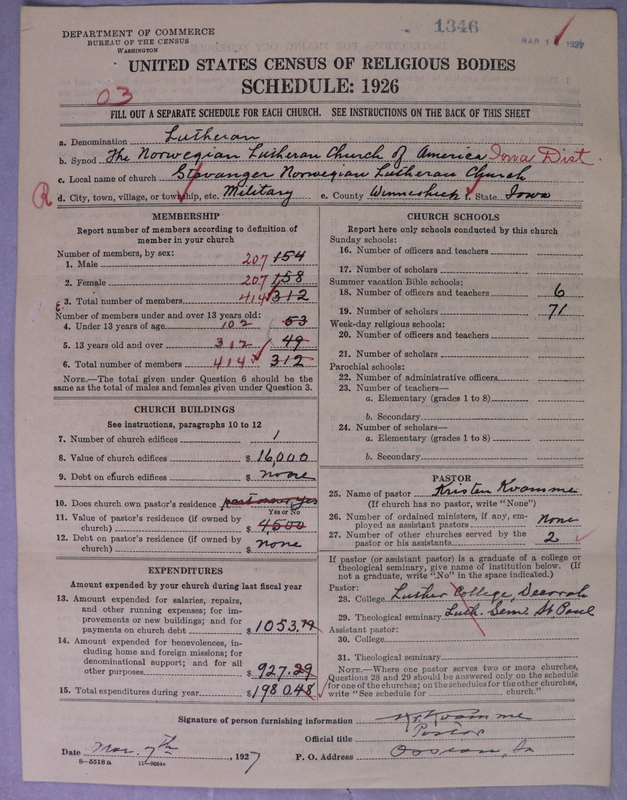 DEPARTMENT OF COMMERCE
BUREAU OF THE CENSUS
WASHINGTON
1346
MAR 1 1927
UNITED STATES CENSUS OF RELIGIOUS BODIES
SCHEDULE: 1926
03
FILL OUT A SEPARATE SCHEDULE FOR EACH CHURCH. SEE INSTRUCTIONS ON THE BACK OF THIS SHEET
a. Denomination Lutheran
b. Synod The Norwegian Lutheran Church of America Iowa Dist.
c. Local name of church Stavanger Norwegian Lutheran Church
R d. City, town, village, or township, etc. Military e. County Winneshiek f. State Iowa
MEMBERSHIP
Report number of members according to definition of
member in your church
Number of members, by sex:
1. Male 207 154
2. Female 207 158
3. Total number of members 414 312
Number of members under and over 13 years old:
4. Under 13 years of age 102 53
5. 13 years old and over 312 49
6. Total number of members 414 312
NOTE.—The total given under Question 6 should be
same as the total of males and females given under Question 3.
CHURCH BUILDINGS
See instructions, paragraphs 10 to 12
7. Number of church edifices 1
8. Value of church edifices $ 16,000
9. Debt on church edifices $ none
10. Does church own pastor's residence yes
Yes or No
11. Value of pastor's residence (if owned by
church) $ 4,500
12. Debt on pastor's residence (if owned by
church) $ none
EXPENDITURES
Amount expended by your church during last fiscal year
13. Amount expended for salaries, repairs,
and other running expenses; for im-
provements or new buildings; and for
payments on church debt $ 1053.19
14. Amount expended for benevolences, in-
cluding home and foreign missions; for
denominational support; and for all
other purposes $ 927.29
15. Total expenditures during year $ 1980.48
CHURCH SCHOOLS
Report here only schools conducted by this church
Sunday schools:
16. Number of officers and teachers
17. Number of scholars
Summer vacation Bible schools:
18. Number of officers and teachers 6
19. Number of scholars 71
Week-day religious schools:
20. Number of officers and teachers
21. Number of scholars
Parochial schools:
22. Number of administrative officers
23. Number of teachers—
a. Elementary (grades 1 to 8)
b. Secondary
24. Number of scholars—
a. Elementary (grades 1 to 8)
b. Secondary
PASTOR
25. Name of pastor Kristen Kvamme
(If church has no pastor, write "None")
26. Number of ordained ministers, if any, em-
ployed as assistant pastors none
27. Number of other churches served by the
pastor or his assistants 2
If pastor (or assistant pastor) is a graduate of a college or
theological seminary, give name of institution below. (If
not a graduate, write "No" in the space indicated.)
Pastor:
28. College Luther College, Decorah
29. Theological seminary Luth. Semi. St Paul
Assistant pastor:
30. College
31. Theological seminary
NOTE.—Where one pastor serves two or more churches,
Questions 28 and 29 should be answered only on the schedule
for one of the churches; on the schedules for the other churches,
write "See schedule for church."
Signature of person furnishing information K Kvamme
Official title Pastor
Date Mar. 7th, 1927 P. O. Address Ossian, Ia
8-5518a